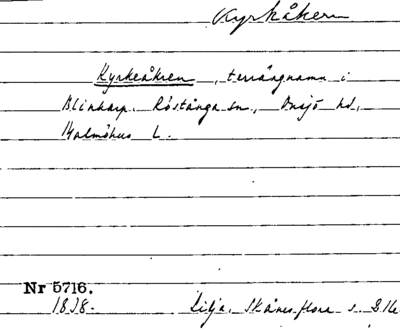 Kyrkåkern
Kyrkeåkren, terrängnamn i
Blinkarp, Röstånga sn., Onsjö hd,
Malmöhus L.
Nr 5716.
1838. Lilja, Skånes flora s.